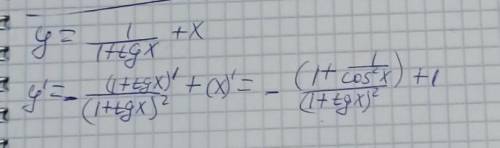 y = 1/(1+tgx) + x
y' = - (1+tgx)'/(1+tgx)² + (x)' = - (1 + 1/cos²x)/(1+tgx)² + 1